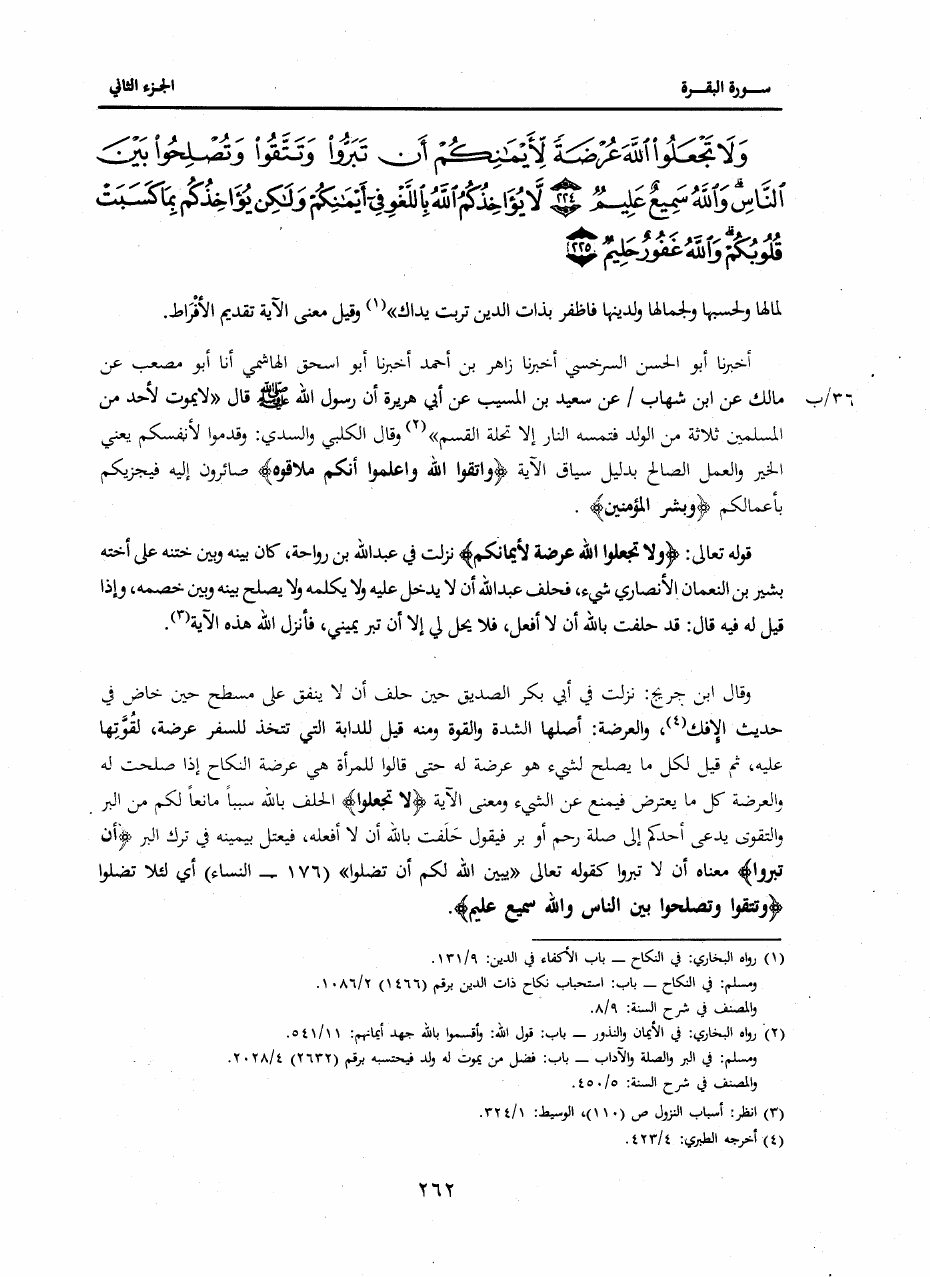 سـورة البقـرة
الجزء الثاني
وَلَا تَجْعَلُوا۟ ٱللَّهَ عُرْضَةً لِّأَيْمَـٰنِكُمْ أَن تَبَرُّوا۟ وَتَتَّقُوا۟ وَتُصْلِحُوا۟ بَيْنَ
ٱلنَّاسِ ۗ وَٱللَّهُ سَمِيعٌ عَلِيمٌ ٢٢٤ لَّا يُؤَاخِذُكُمُ ٱللَّهُ بِٱللَّغْوِ فِىٓ أَيْمَـٰنِكُمْ وَلَـٰكِن يُؤَاخِذُكُم بِمَا كَسَبَتْ
قُلُوبُكُمْ ۗ وَٱللَّهُ غَفُورٌ حَلِيمٌ ٢٢٥
لمالها ولحسبها ولجمالها ولدينها فاظفر بذات الدين تربت يداك»(١) وقيل معنى الآية تقديم الأفْرَاط.
أخبرنا أبو الحسن السرخسي أخبرنا زاهر بن أحمد أخبرنا أبو اسحق الهاشمي أنا أبو مصعب عن
٣٦/ب مالك عن ابن شهاب / عن سعيد بن المسيب عن أبي هريرة أن رسول الله ﷺ قال «لايموت لأحد من
المسلمين ثلاثة من الولد فتمسه النار إلا تحلة القسم»(٢) وقال الكلبي والسدي: وقدموا لأنفسكم يعني
الخير والعمل الصالح بدليل سياق الآية ﴿واتقوا الله واعلموا أنكم ملاقوه﴾ صائرون إليه فيجزيكم
بأعمالكم ﴿وبشر المؤمنين﴾ .
قوله تعالى: ﴿ولا تجعلوا الله عرضة لأيمانكم﴾ نزلت في عبدالله بن رواحة، كان بينه وبين ختنه على أخته
بشير بن النعمان الأنصاري شيء، فحلف عبدالله أن لا يدخل عليه ولا يكلمه ولا يصلح بينه وبين خصمه، وإذا
قيل له فيه قال: قد حلفت بالله أن لا أفعل، فلا يحل لي إلا أن تبر يميني، فأنزل الله هذه الآية(٣).
وقال ابن جريج: نزلت في أبي بكر الصديق حين حلف أن لا ينفق على مسطح حين خاض في
حديث الإفك(٤)، والعرضة: أصلها الشدة والقوة ومنه قيل للدابة التي تتخذ للسفر عرضة، لقُوَّتِها
عليه، ثم قيل لكل ما يصلح لشيء هو عرضة له حتى قالوا للمرأة هي عرضة النكاح إذا صلحت له
والعرضة كل ما يعترض فيمنع عن الشيء ومعنى الآية ﴿لا تجعلوا﴾ الحلف بالله سبباً مانعاً لكم من البر
والتقوى يدعى أحدكم إلى صلة رحم أو بر فيقول حَلَفت بالله أن لا أفعله، فيعتل بيمينه في ترك البر ﴿أن
تبروا﴾ معناه أن لا تبروا كقوله تعالى «يبين الله لكم أن تضلوا» (١٧٦ ــ النساء) أي لئلا تضلوا
﴿وتتقوا وتصلحوا بين الناس والله سميع عليم﴾.
(١) رواه البخاري: في النكاح ــ باب الأكفاء في الدين: ١٣١/٩.
ومسلم: في النكاح ــ باب: استحباب نكاح ذات الدين برقم (١٤٦٦) ١٠٨٦/٢.
والمصنف في شرح السنة: ٨/٩.
(٢) رواه البخاري: في الأيمان والنذور ــ باب: قول الله: وأقسموا بالله جهد أيمانهم: ٥٤١/١١.
ومسلم: في البر والصلة والآداب ــ باب: فضل من يموت له ولد فيحتسبه برقم (٢٦٣٢) ٢٠٢٨/٤.
والمصنف في شرح السنة: ٤٥٠/٥.
(٣) انظر: أسباب النزول ص (١١٠)، الوسيط: ٣٢٤/١.
(٤) أخرجه الطبري: ٤٢٣/٤.
٢٦٢